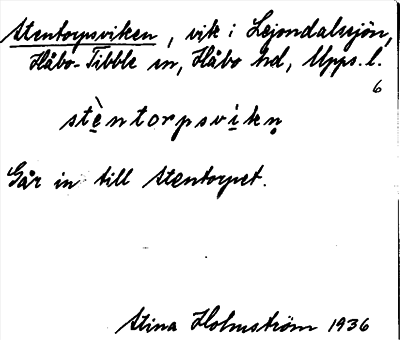 Stentorpsviken, vik i Lejondalssjön,
Håbo-Tibble sn, Håbo hd, Upps. l.
6
stè̤ntorpsvi̤kn̥
Går in till Stentorpet.
Stina Holmström 1936